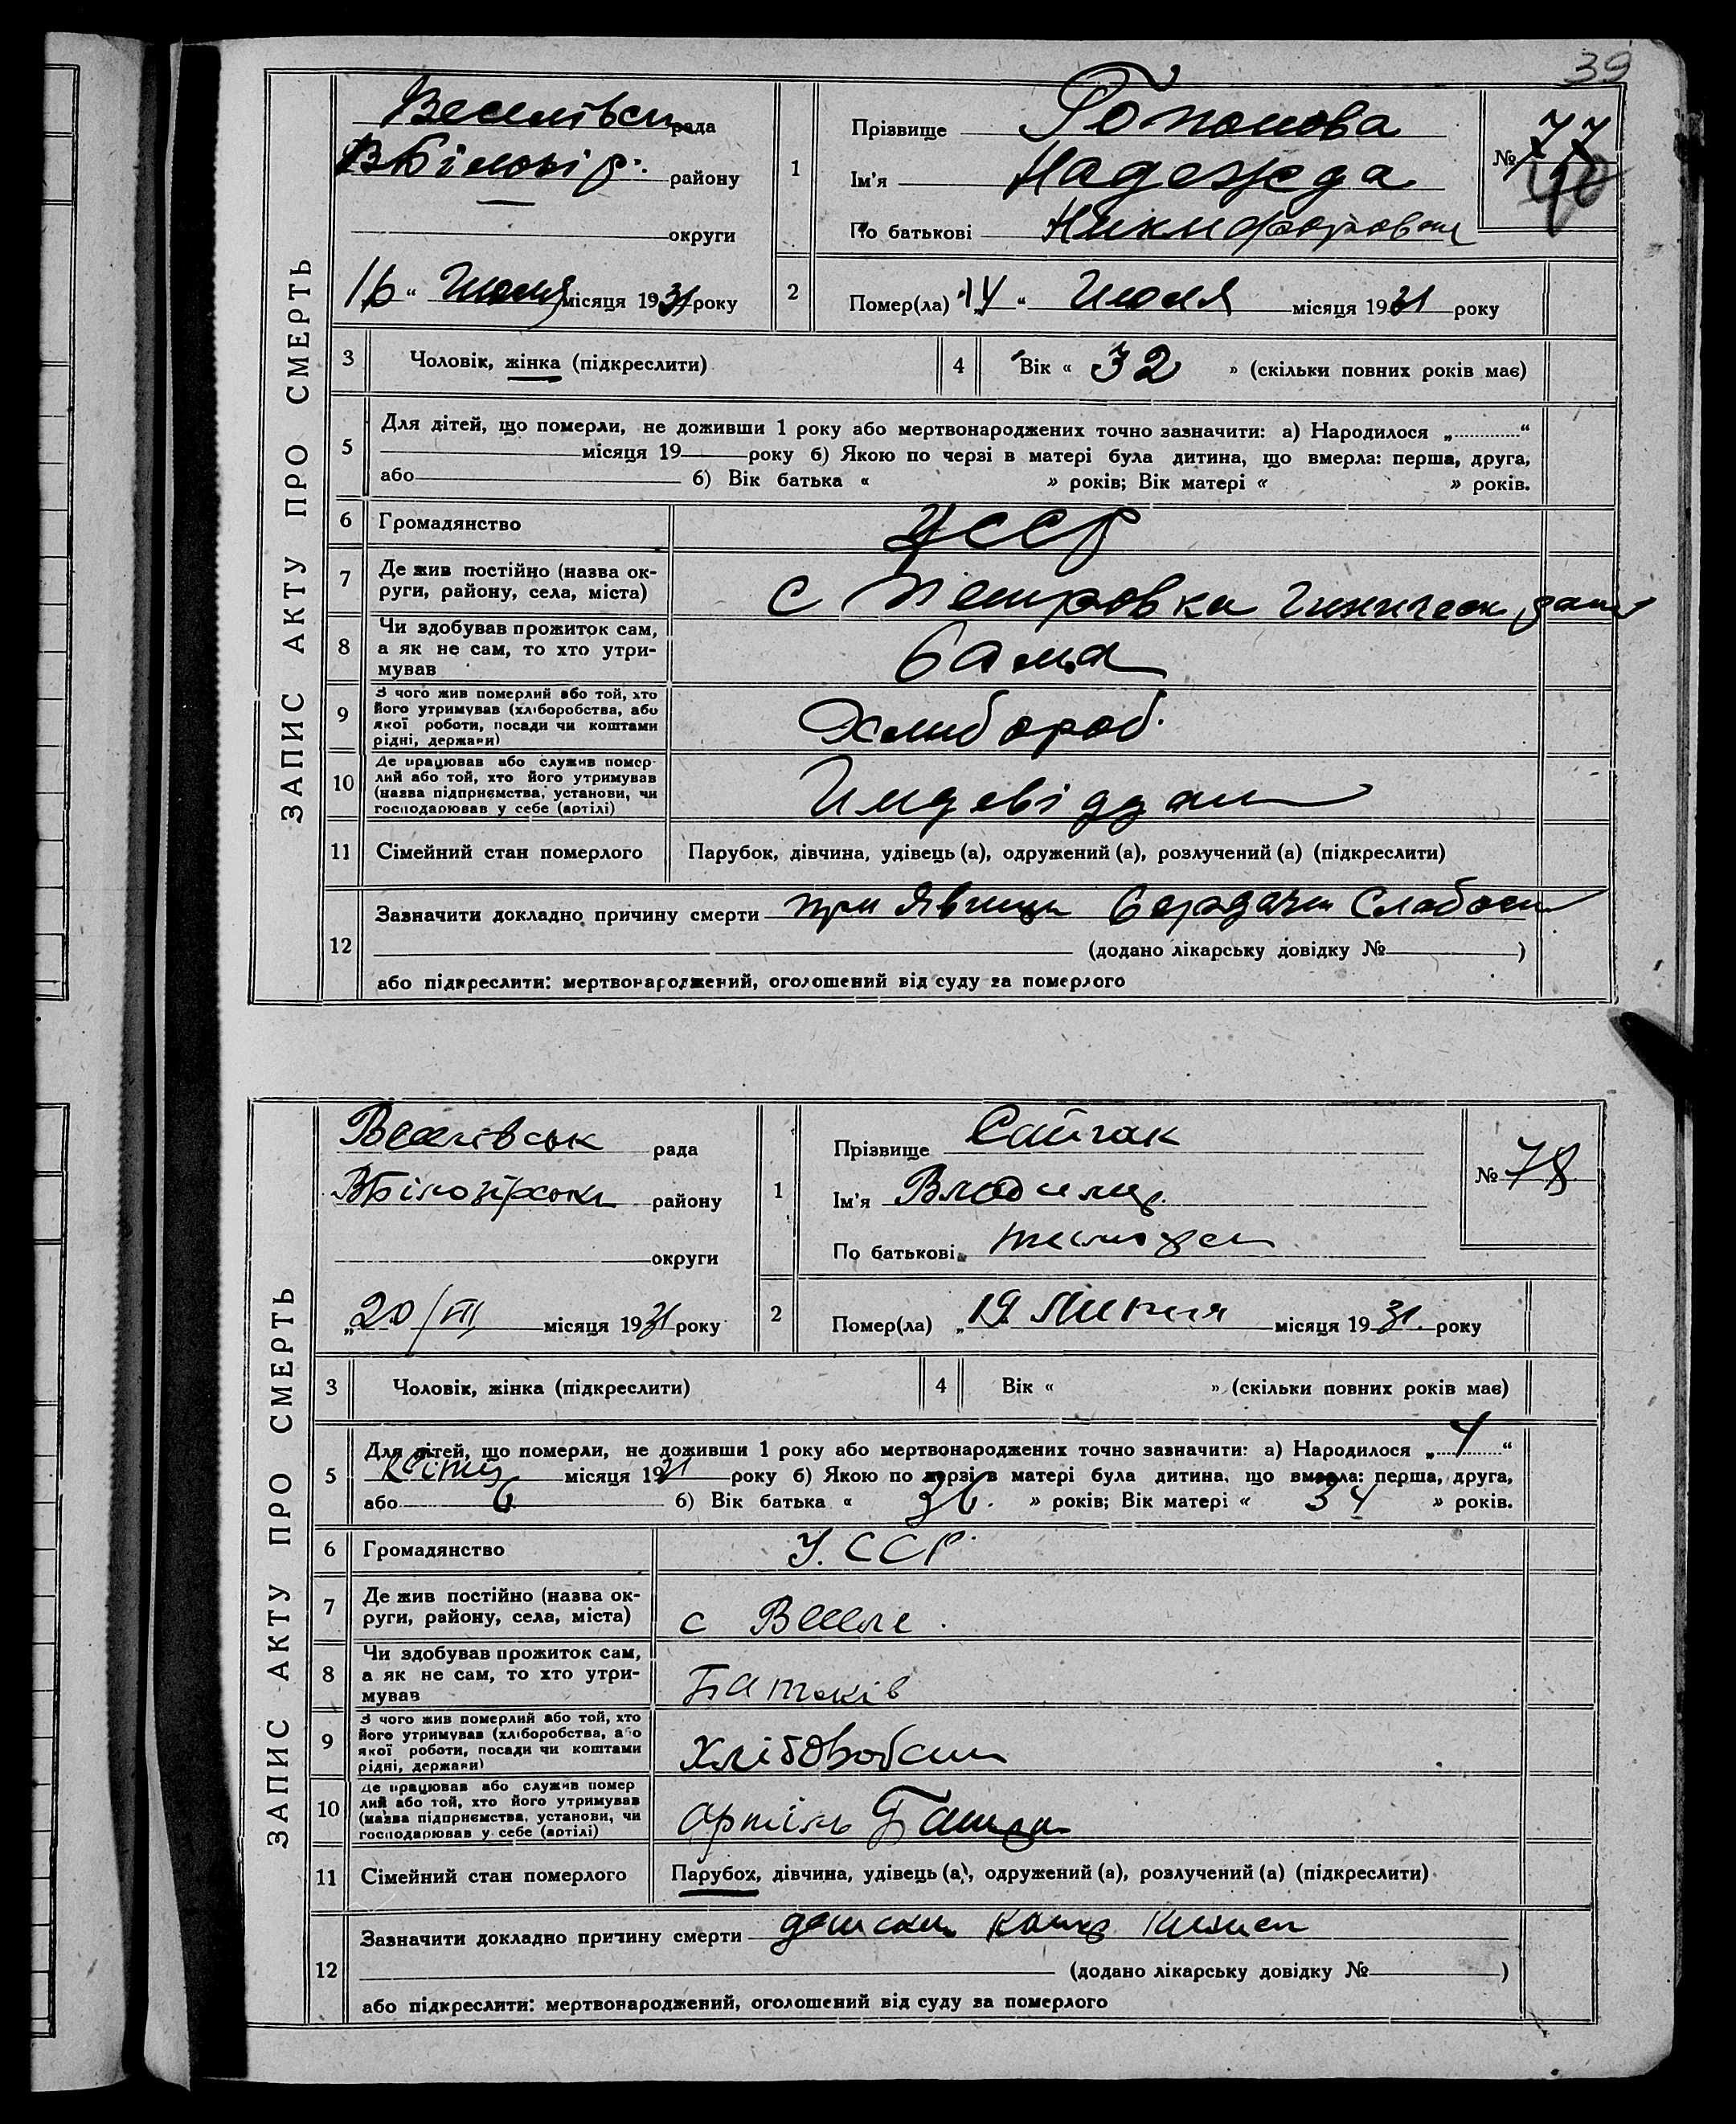 39
ЗАПИС АКТУ ПРО СМЕРТЬ
Веселівськ рада
ВБілозір. району
округи
16 “ Июля місяця 1931 року
1
Прізвище
Ім'я Надежда
По батькові Никифоровна
№ 77
2
Помер(ла) „14 “ Июля місяця 1931 року
3
Чоловік, жінка (підкреслити)
4
Вік « 32 » (скільки повних років має)
5
Для дітей, що померли, не доживши 1 року або мертвонароджених точно зазначити: а) Народилося „ “
місяця 19 року б) Якою по черзі в матері була дитина, що вмерла: перша, друга,
або б) Вік батька « » років; Вік матері « » років.
6
Громадянство
УССР
7
Де жив постійно (назва ок-
руги, району, села, міста)
с Петровка
8
Чи здобував прожиток сам,
а як не сам, то хто утри-
мував
Сама
9
З чого жив померлий або той, хто
його утримував (хліборобства, або
якої роботи, посади чи коштами
рідні, держави)
Хлибороб.
10
Де працював або служив помер-
лий або той, хто його утримував
(назва підприємства, установи, чи
господарював у себе (артілі)
11
Сімейний стан померлого
Парубок, дівчина, удівець (а), одружений (а), розлучений (а) (підкреслити)
12
Зазначити докладно причину смерти при Сердачн Слабост
(додано лікарську довідку № )
або підкреслити: мертвонароджений, оголошений від суду за померлого
ЗАПИС АКТУ ПРО СМЕРТЬ
Веселівськ рада
ВБілозірськ району
округи
„20/VII місяця 1931 року
1
Прізвище Сайчак
Ім'я Владимир
По батькові
№ 78
2
Помер(ла) „19 Липня місяця 1931. року
3
Чоловік, жінка (підкреслити)
4
Вік « » (скільки повних років має)
5
Для дітей, що померли, не доживши 1 року або мертвонароджених точно зазначити: а) Народилося „ “
місяця 1931 року б) Якою по черзі в матері була дитина, що вмерла: перша, друга,
або 6 б) Вік батька « 36. » років; Вік матері « 34 » років.
6
Громадянство
У. ССР.
7
Де жив постійно (назва ок-
руги, району, села, міста)
с Веселе.
8
Чи здобував прожиток сам,
а як не сам, то хто утри-
мував
Батьків
9
З чого жив померлий або той, хто
його утримував (хліборобства, або
якої роботи, посади чи коштами
рідні, держави)
10
Де працював або служив помер
лий або той, хто його утримував
(назва підприємства, установи, чи
господарював у себе (артілі)
артіль
11
Сімейний стан померлого
Парубок, дівчина, удівець (а), одружений (а), розлучений (а) (підкреслити)
12
Зазначити докладно причину смерти
(додано лікарську довідку № )
або підкреслити: мертвонароджений, оголошений від суду за померлого